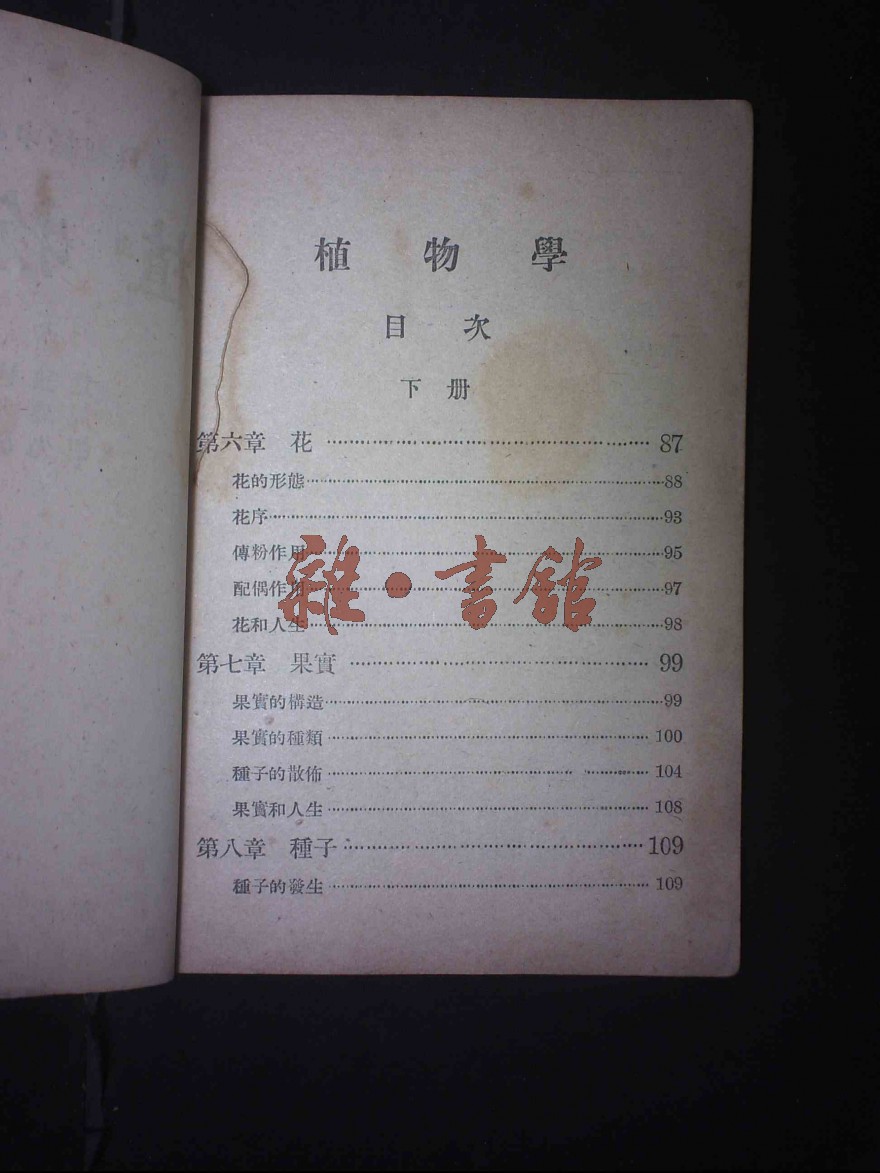 植物學
目次
下册
第六章 花 ………… 87
花的形態 ………… 88
花序 ………… 93
傳粉作用 ………… 95
配偶作用 ………… 97
花和人生 ………… 98
第七章 果實 ………… 99
果實的構造 ………… 99
果實的種類 ………… 100
種子的散佈 ………… 104
果實和人生 ………… 108
第八章 種子 ………… 109
種子的發生 ………… 109
雜·書館